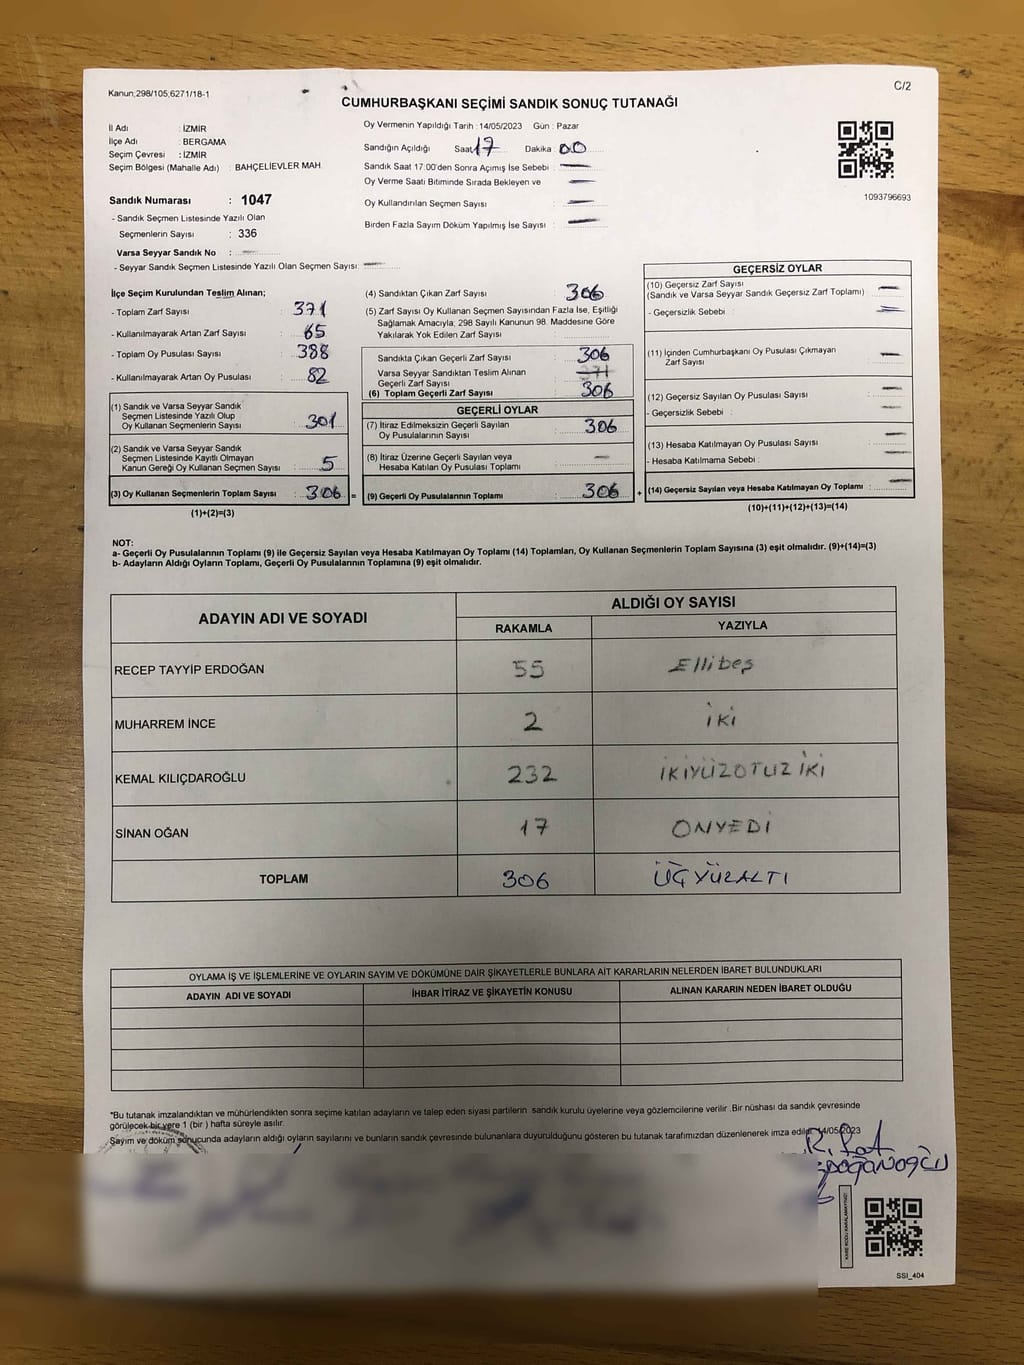 Kanun;298/105;6271/18-1
C/2
CUMHURBAŞKANI SEÇİMİ SANDIK SONUÇ TUTANAĞI
İl Adı : İZMİR
İlçe Adı : BERGAMA
Seçim Çevresi : İZMİR
Seçim Bölgesi (Mahalle Adı) : BAHÇELİEVLER MAH.
Oy Vermenin Yapıldığı Tarih : 14/05/2023 Gün : Pazar
Sandığın Açıldığı Saat 17 Dakika : 00
Sandık Saat 17:00'den Sonra Açımış İse Sebebi : —
Oy Verme Saati Bitiminde Sırada Bekleyen ve —
Oy Kullandırılan Seçmen Sayısı : —
Birden Fazla Sayım Döküm Yapılmış İse Sayısı : —
1093796693
Sandık Numarası : 1047
- Sandık Seçmen Listesinde Yazılı Olan
Seçmenlerin Sayısı : 336
Varsa Seyyar Sandık No : —
- Seyyar Sandık Seçmen Listesinde Yazılı Olan Seçmen Sayısı : —
İlçe Seçim Kurulundan Teslim Alınan;
- Toplam Zarf Sayısı : 371
- Kullanılmayarak Artan Zarf Sayısı : 65
- Toplam Oy Pusulası Sayısı : 388
- Kullanılmayarak Artan Oy Pusulası : 82
(1) Sandık ve Varsa Seyyar Sandık
Seçmen Listesinde Yazılı Olup
Oy Kullanan Seçmenlerin Sayısı : 301
(2) Sandık ve Varsa Seyyar Sandık
Seçmen Listesinde Kayıtlı Olmayan
Kanun Gereği Oy Kullanan Seçmen Sayısı : 5
(3) Oy Kullanan Seçmenlerin Toplam Sayısı : 306 =
(1)+(2)=(3)
(4) Sandıktan Çıkan Zarf Sayısı : 306
(5) Zarf Sayısı Oy Kullanan Seçmen Sayısından Fazla İse, Eşitliği
Sağlamak Amacıyla, 298 Sayılı Kanunun 98. Maddesine Göre
Yakılarak Yok Edilen Zarf Sayısı :
Sandıkta Çıkan Geçerli Zarf Sayısı : 306
Varsa Seyyar Sandıktan Teslim Alınan
Geçerli Zarf Sayısı : 371
(6) Toplam Geçerli Zarf Sayısı : 306
GEÇERLİ OYLAR
(7) İtiraz Edilmeksizin Geçerli Sayılan
Oy Pusulalarının Sayısı : 306
(8) İtiraz Üzerine Geçerli Sayılan veya
Hesaba Katılan Oy Pusulası Toplamı : —
(9) Geçerli Oy Pusulalarının Toplamı : 306 +
GEÇERSİZ OYLAR
(10) Geçersiz Zarf Sayısı : —
(Sandık ve Varsa Seyyar Sandık Geçersiz Zarf Toplamı)
- Geçersizlik Sebebi : —
(11) İçinden Cumhurbaşkanı Oy Pusulası Çıkmayan
Zarf Sayısı : —
(12) Geçersiz Sayılan Oy Pusulası Sayısı : —
- Geçersizlik Sebebi : —
(13) Hesaba Katılmayan Oy Pusulası Sayısı : —
- Hesaba Katılmama Sebebi : —
(14) Geçersiz Sayılan veya Hesaba Katılmayan Oy Toplamı : —
(10)+(11)+(12)+(13)=(14)
NOT:
a- Geçerli Oy Pusulalarının Toplamı (9) ile Geçersiz Sayılan veya Hesaba Katılmayan Oy Toplamı (14) Toplamları, Oy Kullanan Seçmenlerin Toplam Sayısına (3) eşit olmalıdır. (9)+(14)=(3)
b- Adayların Aldığı Oyların Toplamı, Geçerli Oy Pusulalarının Toplamına (9) eşit olmalıdır.
ADAYIN ADI VE SOYADI ALDIĞI OY SAYISI
RAKAMLA YAZIYLA
RECEP TAYYİP ERDOĞAN 55 Ellibeş
MUHARREM İNCE 2 İKİ
KEMAL KILIÇDAROĞLU 232 İKİYÜZOTUZİKİ
SİNAN OĞAN 17 ONYEDİ
TOPLAM 306 ÜÇYÜZALTI
OYLAMA İŞ VE İŞLEMLERİNE VE OYLARIN SAYIM VE DÖKÜMÜNE DAİR ŞİKAYETLERLE BUNLARA AİT KARARLARIN NELERDEN İBARET BULUNDUKLARI
ADAYIN ADI VE SOYADI İHBAR İTİRAZ VE ŞİKAYETİN KONUSU ALINAN KARARIN NEDEN İBARET OLDUĞU
*Bu tutanak imzalandıktan ve mühürlendikten sonra seçime katılan adayların ve talep eden siyasi partilerin sandık kurulu üyelerine veya gözlemcilerine verilir .Bir nüshası da sandık çevresinde
görülecek bir yere 1 (bir ) hafta süreyle asılır.
Sayım ve döküm sonucunda adayların aldığı oyların sayılarını ve bunların sandık çevresinde bulunanlara duyurulduğunu gösteren bu tutanak tarafımızdan düzenlenerek imza edildi. 14/05/2023
SSI_404